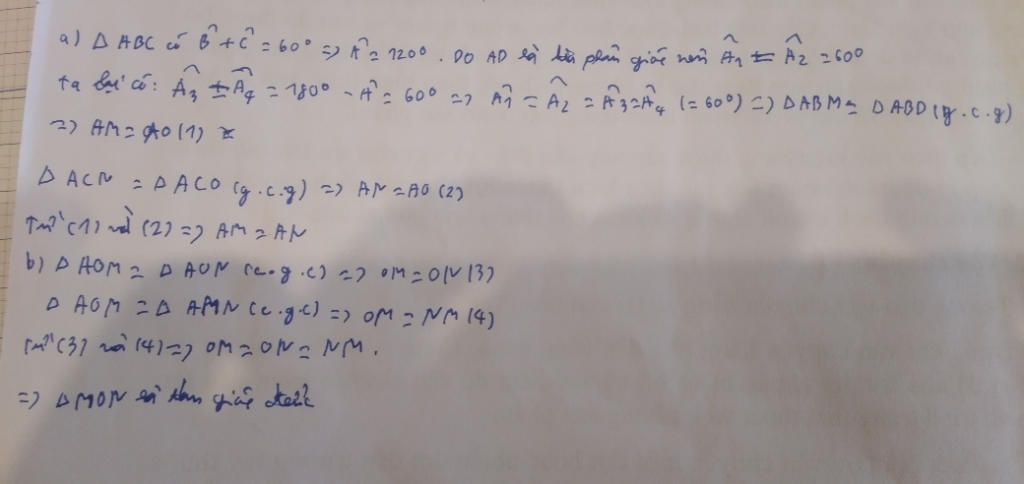 a) Δ ABC có B̂ + Ĉ = 60° => Â = 120°. DO AD là tia phân giác nên Â1 = Â2 = 60°
ta lại có: Â3 = Â4 = 180° - Â = 60° => Â1 = Â2 = Â3 = Â4 (= 60°) => ΔABM = ΔABD (g.c.g)
=> AM = AO (1)
Δ ACN = Δ ACO (g.c.g) => AN = AO (2)
Từ (1) và (2) => AM = AN
b) Δ AOM = Δ AON (c.g.c) => OM = ON (3)
Δ AOM = Δ AMN (c.g.c) => OM = NM (4)
Từ (3) và (4) => OM = ON = NM.
=> ΔMON là tam giác đều